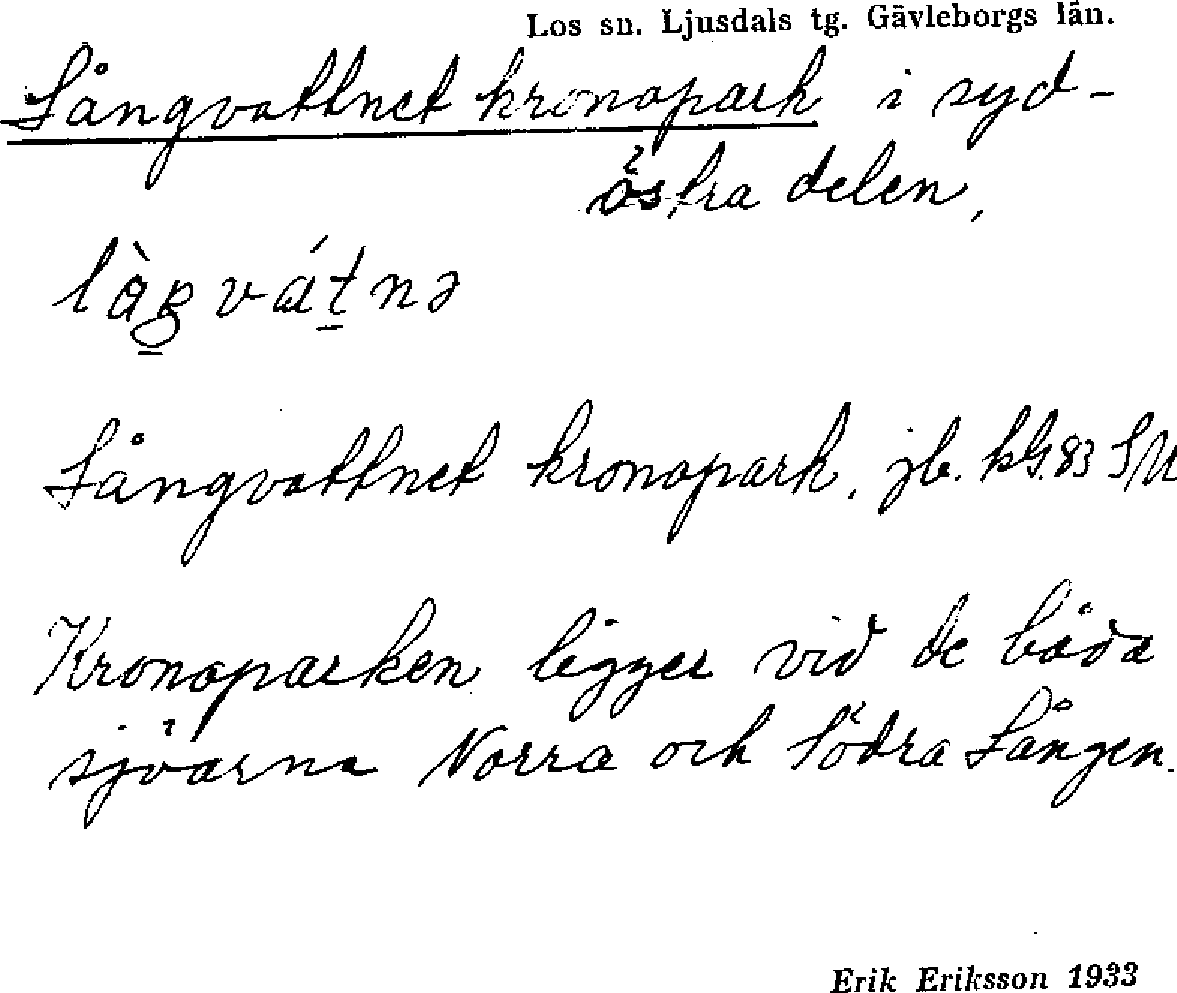 Los sn. Ljusdals tg. Gävleborgs län.
Långvattnet kronopark i syd-
östra delen,
Långvattnet kronopark, jb. kG. 83 SU
Kronoparken ligger vid de båda
sjöarna Norra och Södra Lången.
Erik Eriksson 1933